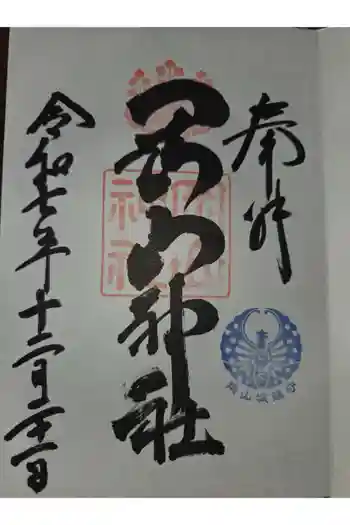 奉拝
岡山神社
岡山神社
令和七年十二月二十一日